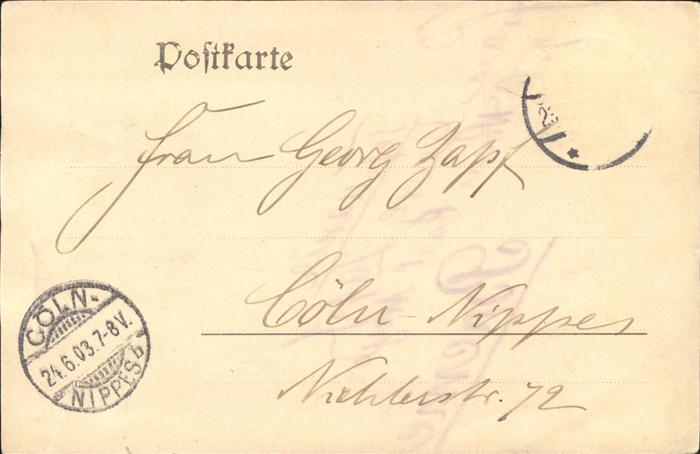 Postkarte
Frau Georg Zapf
Cöln-Nippes
Niehlerstr. 72
CÖLN-
24.6.03.7-8V.
NIPPES b